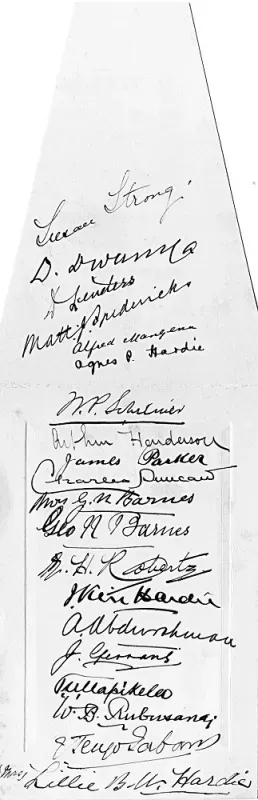 Susan Strong.
D. Dwanya
D. J. Lenders
Matt. J. Fredericks
Alfred Mangena
Agnes P. Hardie
W. P. Schreiner
Arthur Henderson
James Parker
Charles Duncan
Mrs G. N. Barnes
Geo N Barnes
G. H. Roberts
J Keir Hardie
A. Abdurahman
J. Gerrans
T. M. Mapikela
W. B. Rubusana,
J Tengo Jabavu
(Mrs) Lillie B. M. Hardie